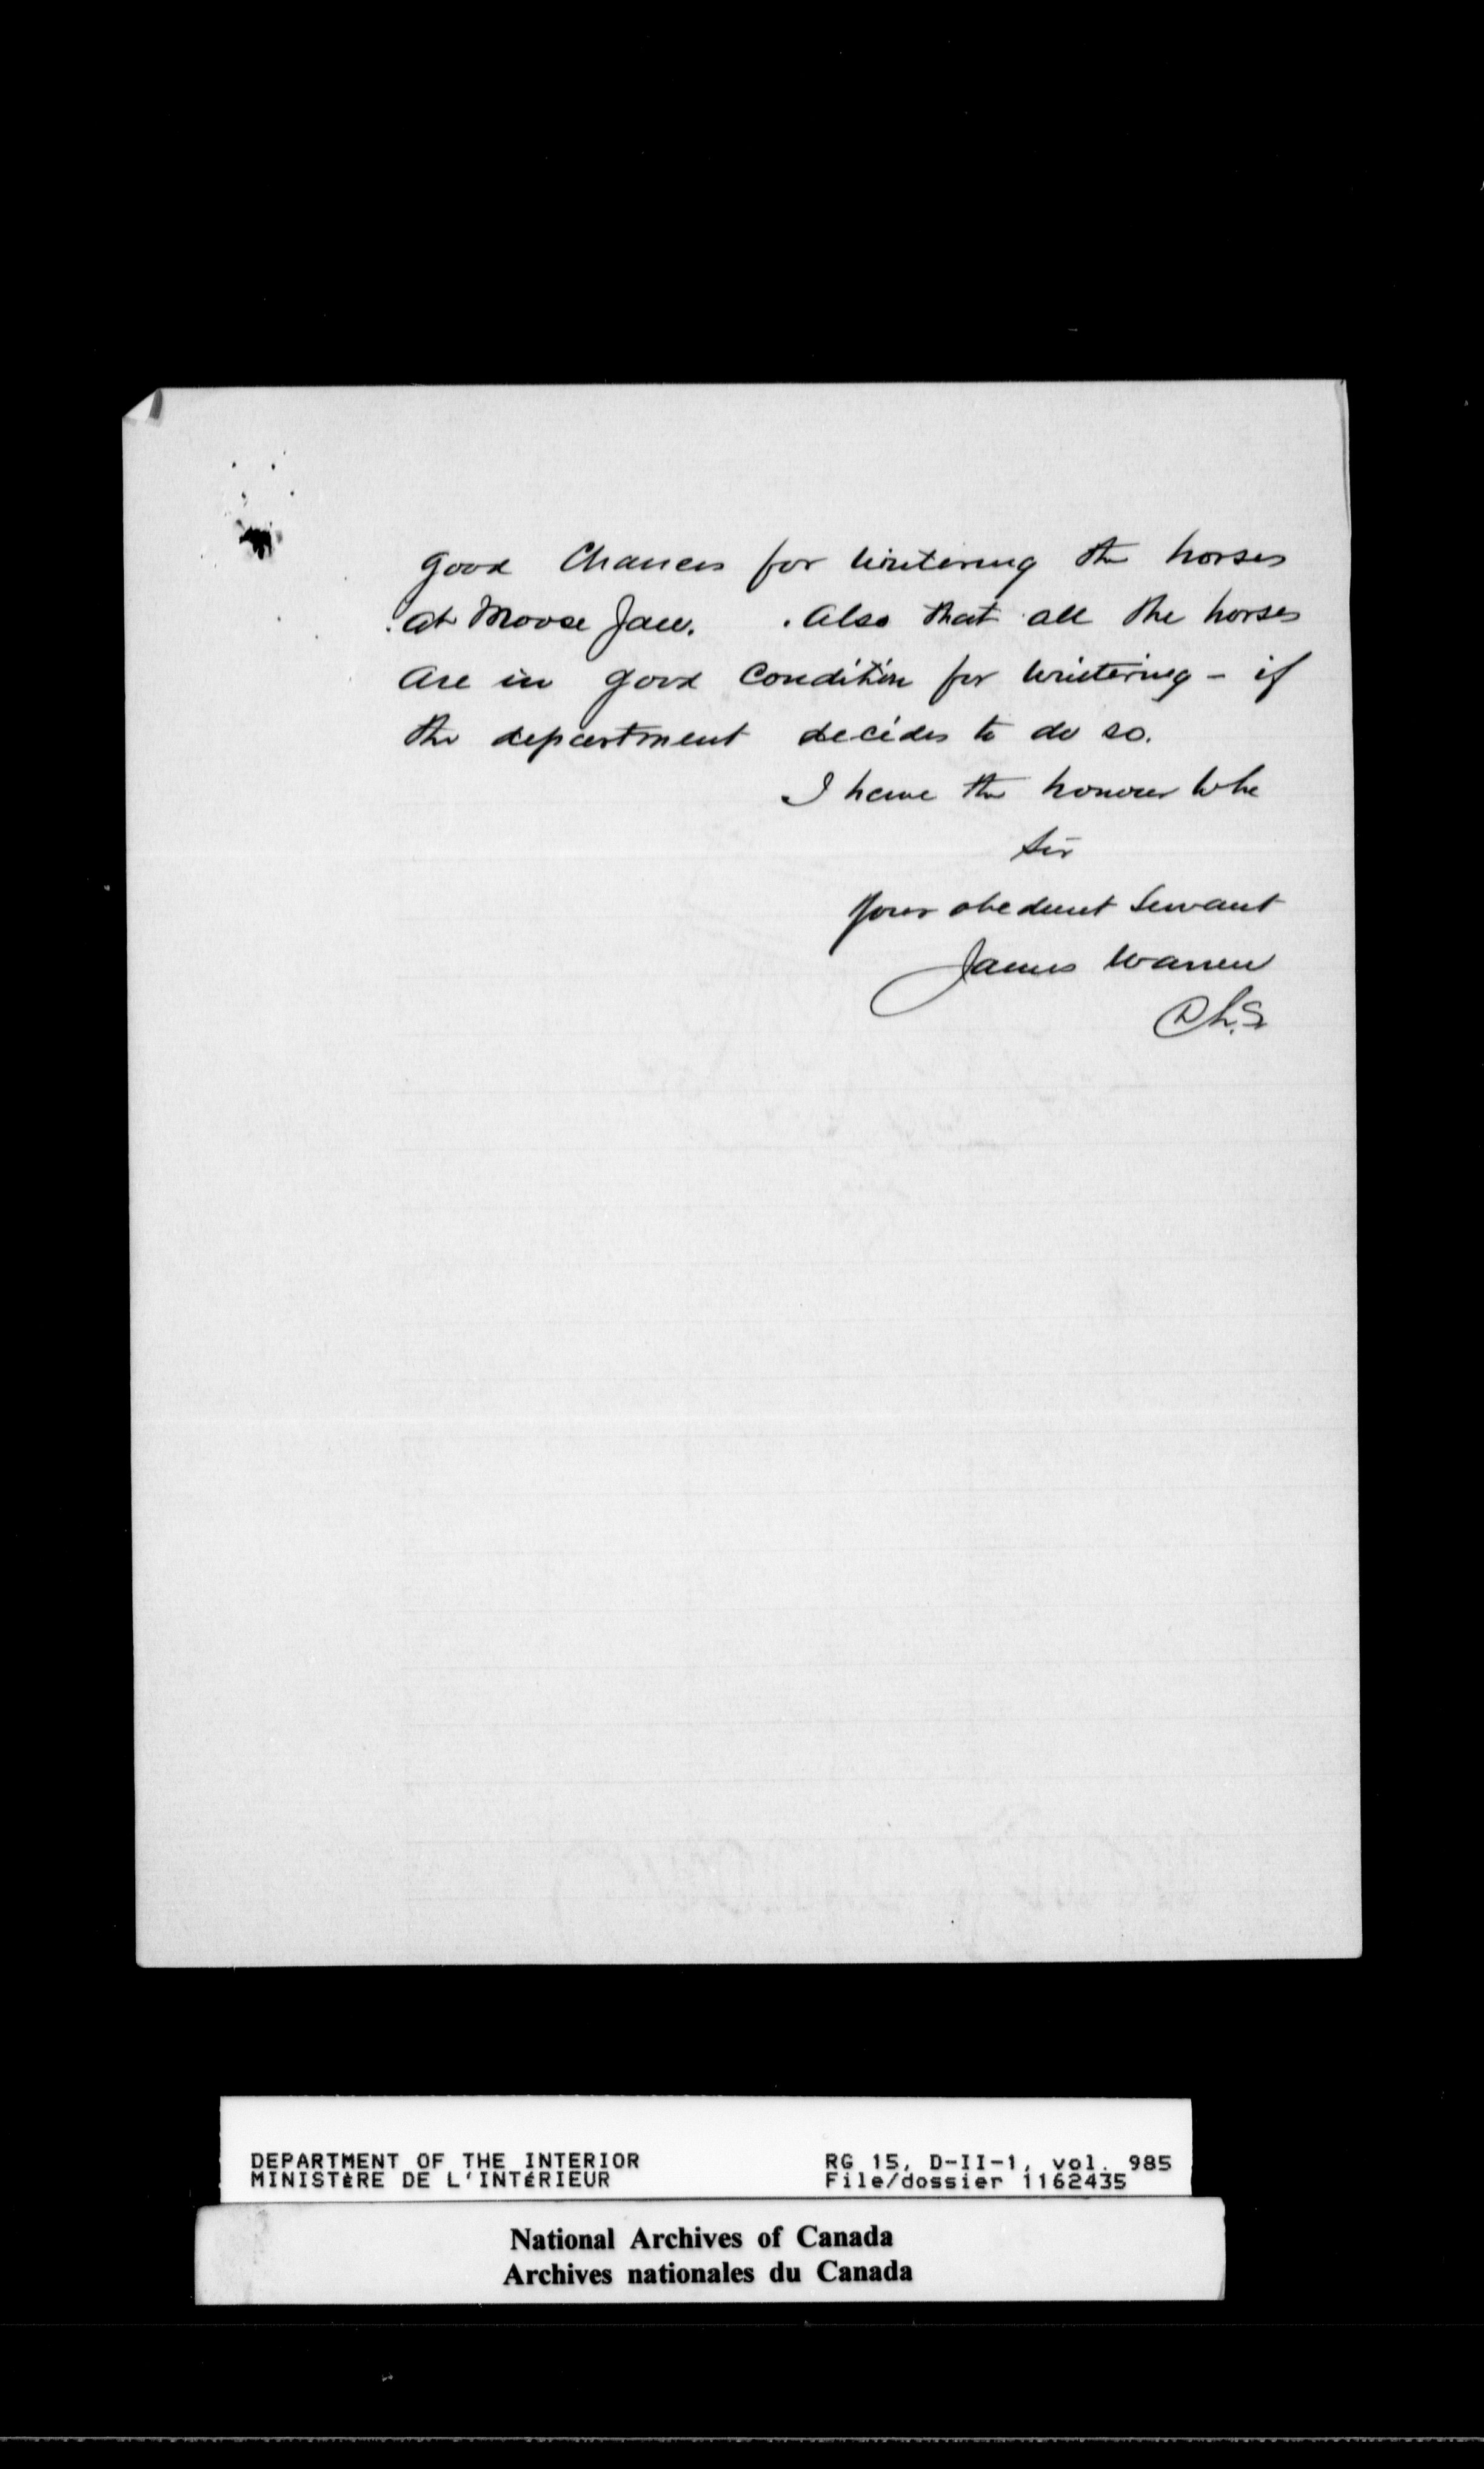 good Chances for wintering the horses
at Moose Jaw. . Also that all the horses
are in good Condition for wintering - if
the department decides to do so.
I have the honour to be
Sir
Your obedient Servant
James Warren
D.L.S.
DEPARTMENT OF THE INTERIOR
MINISTÈRE DE L'INTÉRIEUR
RG 15, D-II-1, vol. 985
File/dossier 1162435
National Archives of Canada
Archives nationales du Canada